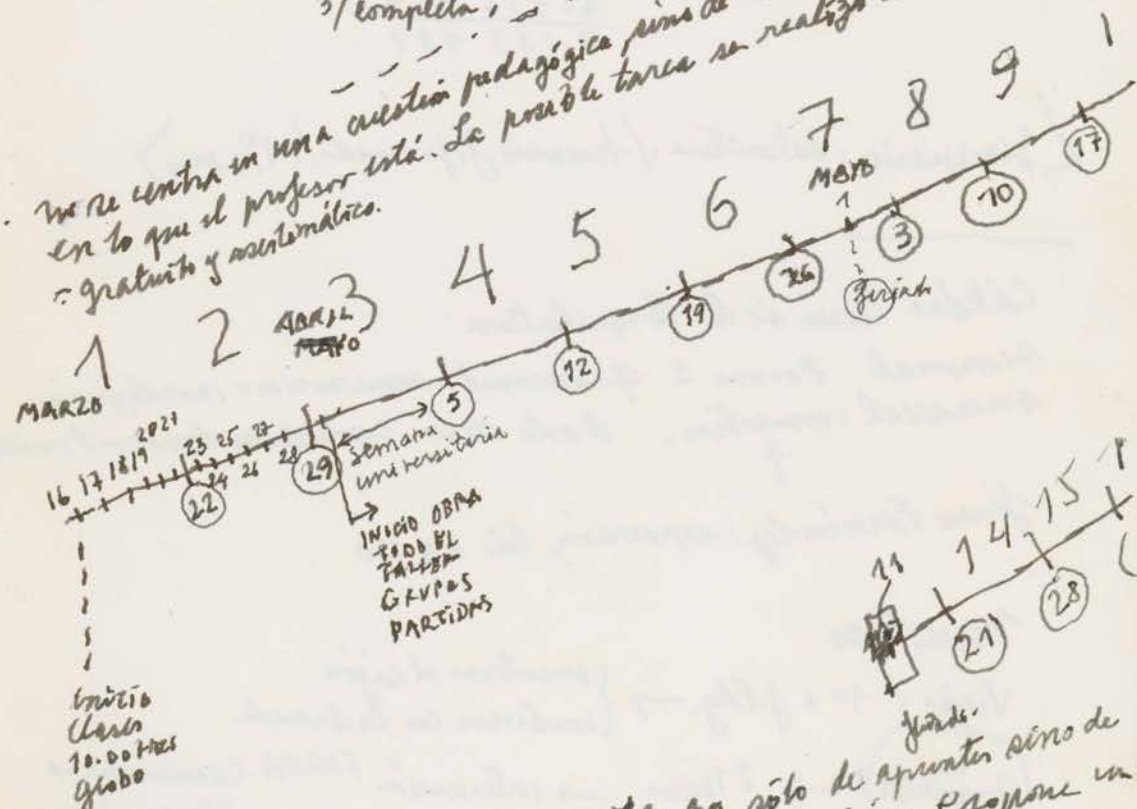 3/ completa,
no se centra en una cuestión pedagógica sino de
en lo que el profesor está. La posible tarea se realiza
- gratuito y asistemático.
1 2 3 4 5 6 7 8 9 1
MARZO
ABRIL
MAYO
MAYO
1
16 17 18 19 20 21 22 23 24 25 26 27 28 29
5 12 19 26 3 10 17
feriado
semana
universitaria
INICIO OBRA
TODO EL
TALLER
GRUPOS
PARTIDAS
Inicio
Clases
10.00 HRS
globo
11
14 15 1
21 28
sólo de apuntes sino de
propone un